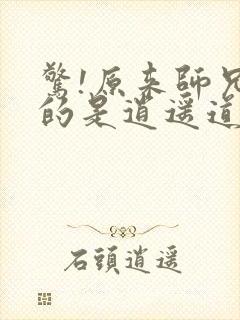 驚!原來師兄
的是逍遥道
石頭逍遥